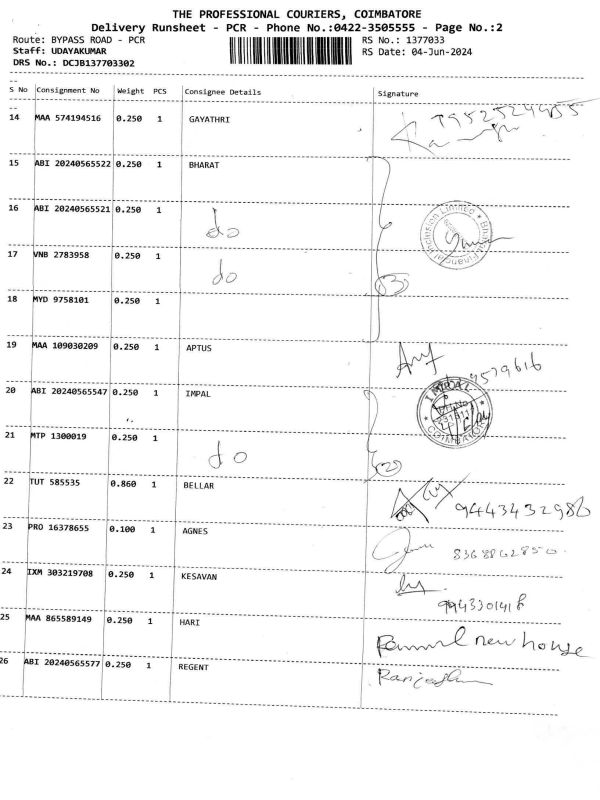 THE PROFESSIONAL COURIERS, COIMBATORE
Delivery Runsheet - PCR - Phone No.:0422-3505555 - Page No.:2
Route: BYPASS ROAD - PCR RS No.: 1377033
Staff: UDAYAKUMAR RS Date: 04-Jun-2024
DRS No.: DCJB137703302
S No Consignment No Weight PCS Consignee Details Signature
14 MAA 574194516 0.250 1 GAYATHRI
15 ABI 20240565522 0.250 1 BHARAT
16 ABI 20240565521 0.250 1 do
Bharat Financial Inclusion Limited
17 VNB 2783958 0.250 1 do
18 MYD 9758101 0.250 1
19 MAA 109030209 0.250 1 APTUS
9579616
20 ABI 20240565547 0.250 1 IMPAL
IMPAL
COIMBATORE
21 MTP 1300019 0.250 1 do
22 TUT 585535 0.860 1 BELLAR
9443432986
23 PRO 16378655 0.100 1 AGNES
24 IXM 303219708 0.250 1 KESAVAN
9943301418
25 MAA 865589149 0.250 1 HARI
new house
26 ABI 20240565577 0.250 1 REGENT